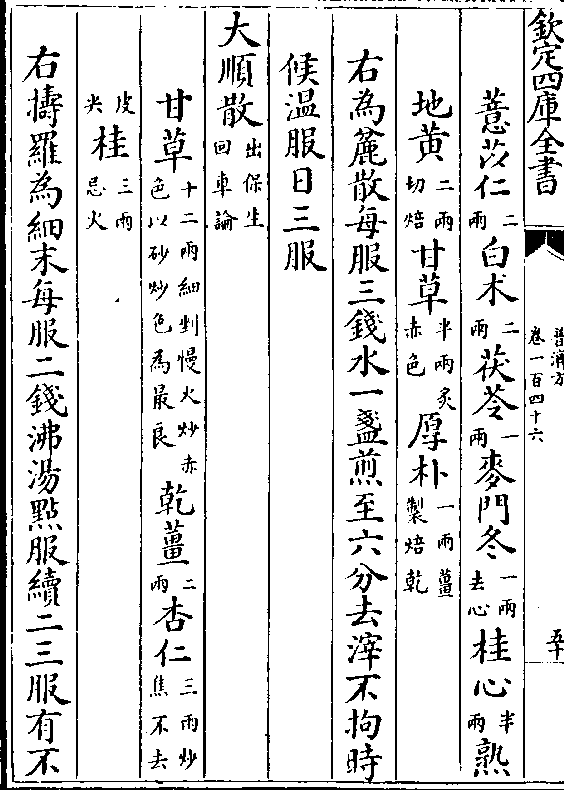 欽定四庫全書
普濟方
卷一百四十六
五十
薏苡仁二兩白术二兩茯苓一兩麥門冬一兩去心桂心半兩熟
地黄二兩切焙甘草半兩炙赤色厚朴一兩薑製焙乾
右為麄散每服三錢水一盞煎至六分去滓不拘時
候温服日三服
大順散出保生回車論
甘草十二兩細剉慢火炒赤色以砂炒色為最良乾薑二兩杏仁三兩炒焦不去
皮尖桂三兩忌火
右擣羅為細末每服二錢沸湯點服續二三服有不